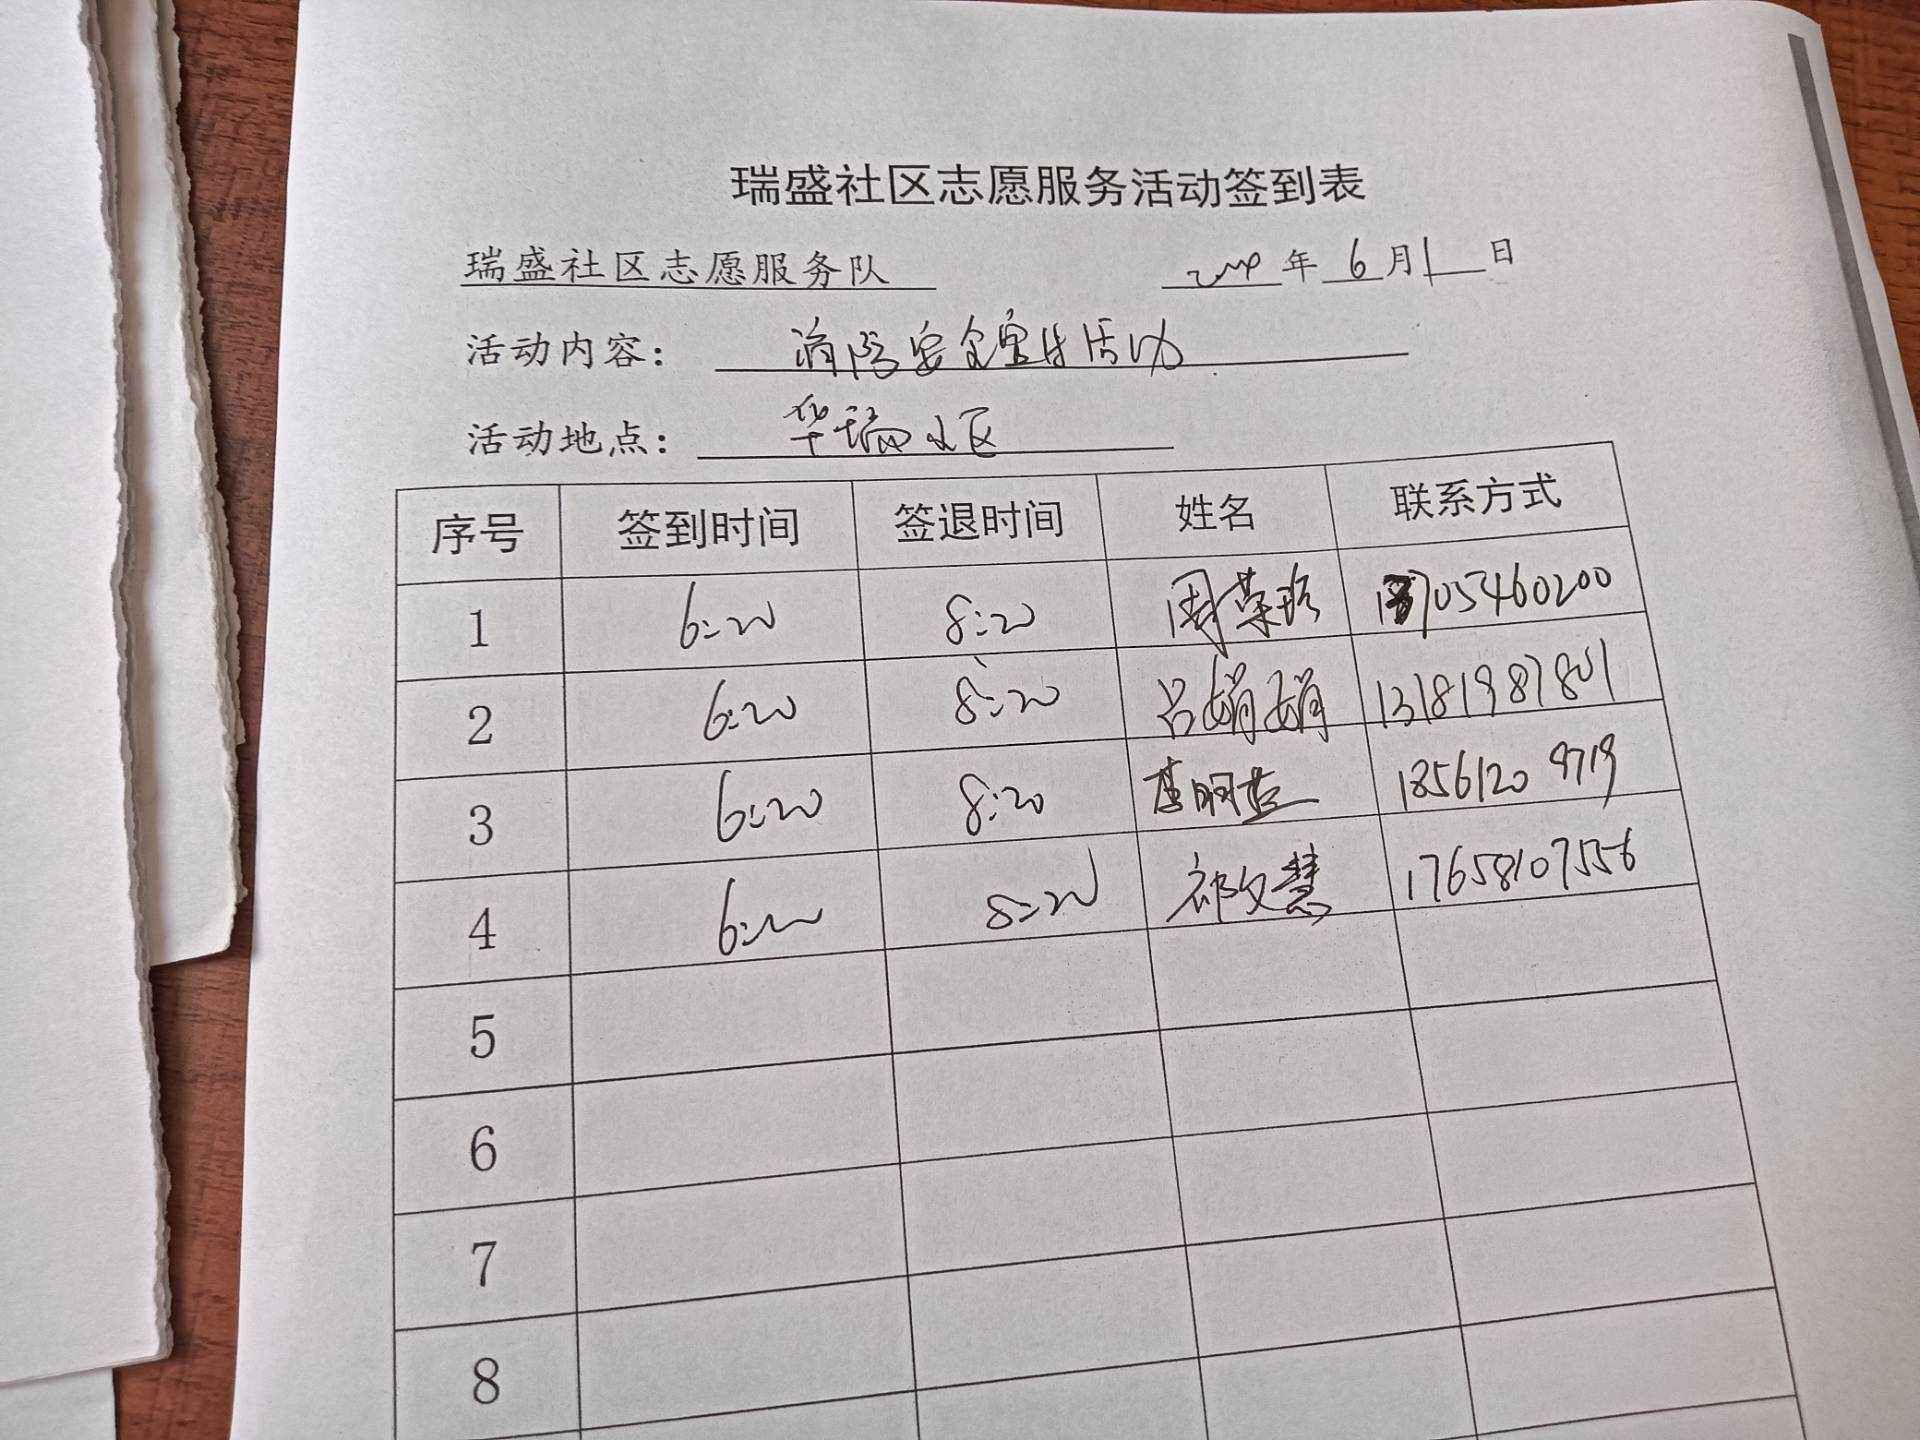 瑞盛社区志愿服务活动签到表
瑞盛社区志愿服务队 年 6 月 1 日
活动内容： 消防安全宣传活动
活动地点： 华瑞小区
序号 签到时间 签退时间 姓名 联系方式
1 6:20 8:20 周荣珍 05460200
2 6:20 8:20 吕娟娟 13181987801
3 6:20 8:20 李明 1856120 9719
4 6:20 8:20 祁文慧 17658107556
5
6
7
8